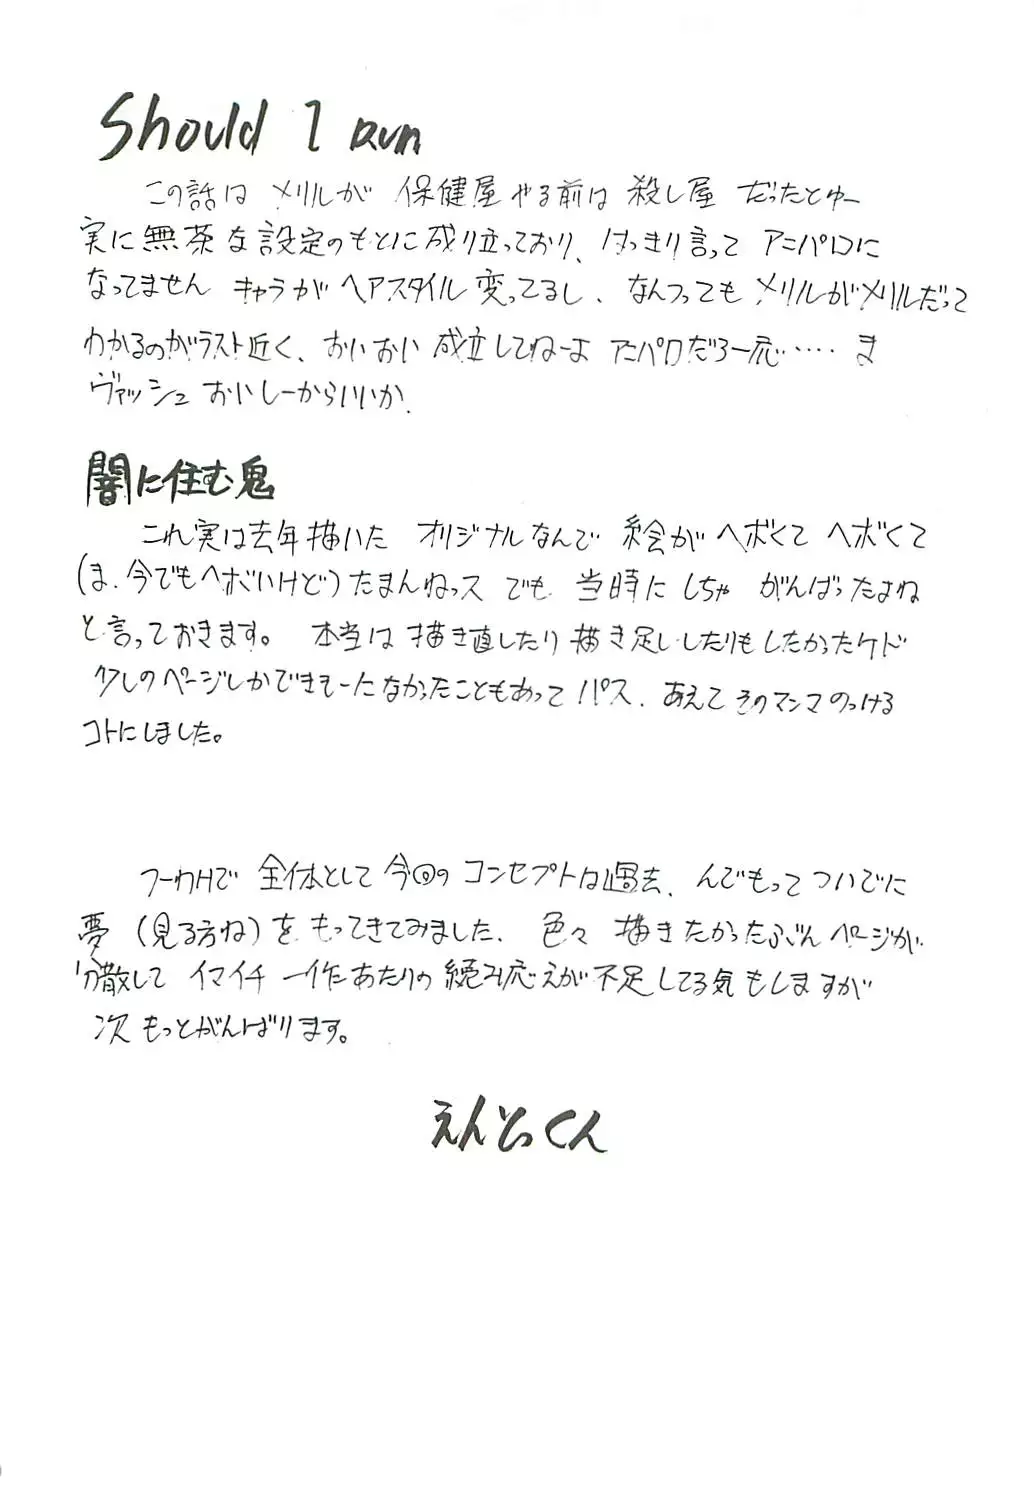 Should I run
この話は メリルが 保健屋 やる前は 殺し屋 だったとゆー
実に無茶な設定のもとに成り立っており、はっきり言って アニパロに
なってません キャラが ヘアスタイル 変ってるし、なんつっても メリルがメリルだって
わかるのがラスト近く、おいおい 成立してねーよ アニパロだろ一応‥‥ ま
ヴァッシュ おいしーからいいか.
闇に住む鬼
これ実は去年描いた オリジナルなんで 絵がヘボくて ヘボくて
(ま、今でもヘボいけど)たまんねっス でも 当時に しちゃ がんばったよね
と言っておきます。 本当は 描き直したり 描き足ししたりもしたかったケド
少しのページしかできそーになかったこともあって パス、あえて そのマンマ のっける
コトにしました。
つーわけで 全体として 今回の コンセプトは過去、んでもって ついでに
夢 (見る方ね)を もってきてみました、色々 描きたかったぶん ページが
分散して イマイチ 一作あたりの 読み応えが不足してる気もしますが
次 もっとがんばります。
えんとっくん